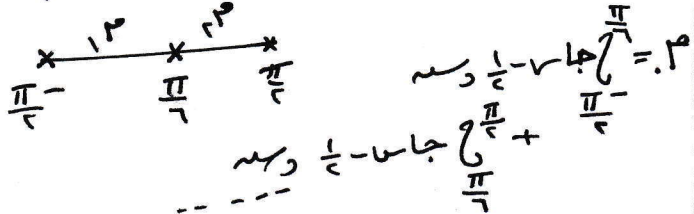 م١ م٢
-π/٢ π/٦ π/٢
م. = ∫_{-π/٢}^{π/٦} جا س - ١/٢ دس
+ ∫_{π/٦}^{π/٢} جا س - ١/٢ دس
-----